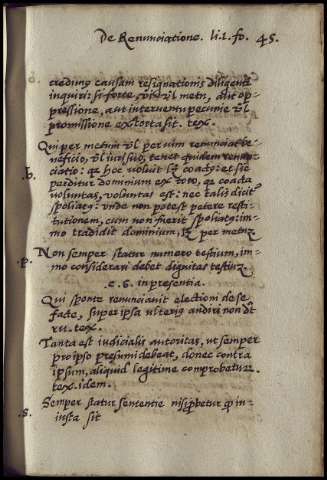 De Renunciatione. li. 1. fo. 45.
credimus causam resignationis diligenter
inquiri: si forte, vi vel metu, aut op-
pressione, aut interventu pecunie vel
promissione extorta sit. tex.
Qui per metum vel per vim renunciat be-
neficio, vel iuri suo, tenet quidem renun-
.b. ciatio: quia hoc voluit licet coactus: et sic
perditur dominium ex toto, quia coacta
voluntas, voluntas est: nec talis dicitur
spoliatus: unde non potest petere resti-
tutionem, cum non fuerit spoliatus: im-
mo tradidit dominium, licet per metum
.p. Non semper statur numero testium, im-
mo considerari debet dignitas testium
e. s. in presentia.
Qui sponte renunciavit electioni de se
facte, super ipsa ulterius audiri non
tex.
Tanta est iudicialis autoritas, ut semper
pro ipso presumi debeat, donec contra
ipsum, aliquid legitime comprobetur.
tex. idem.
.s. Semper statur sententie nisi probetur quod in-
iusta sit